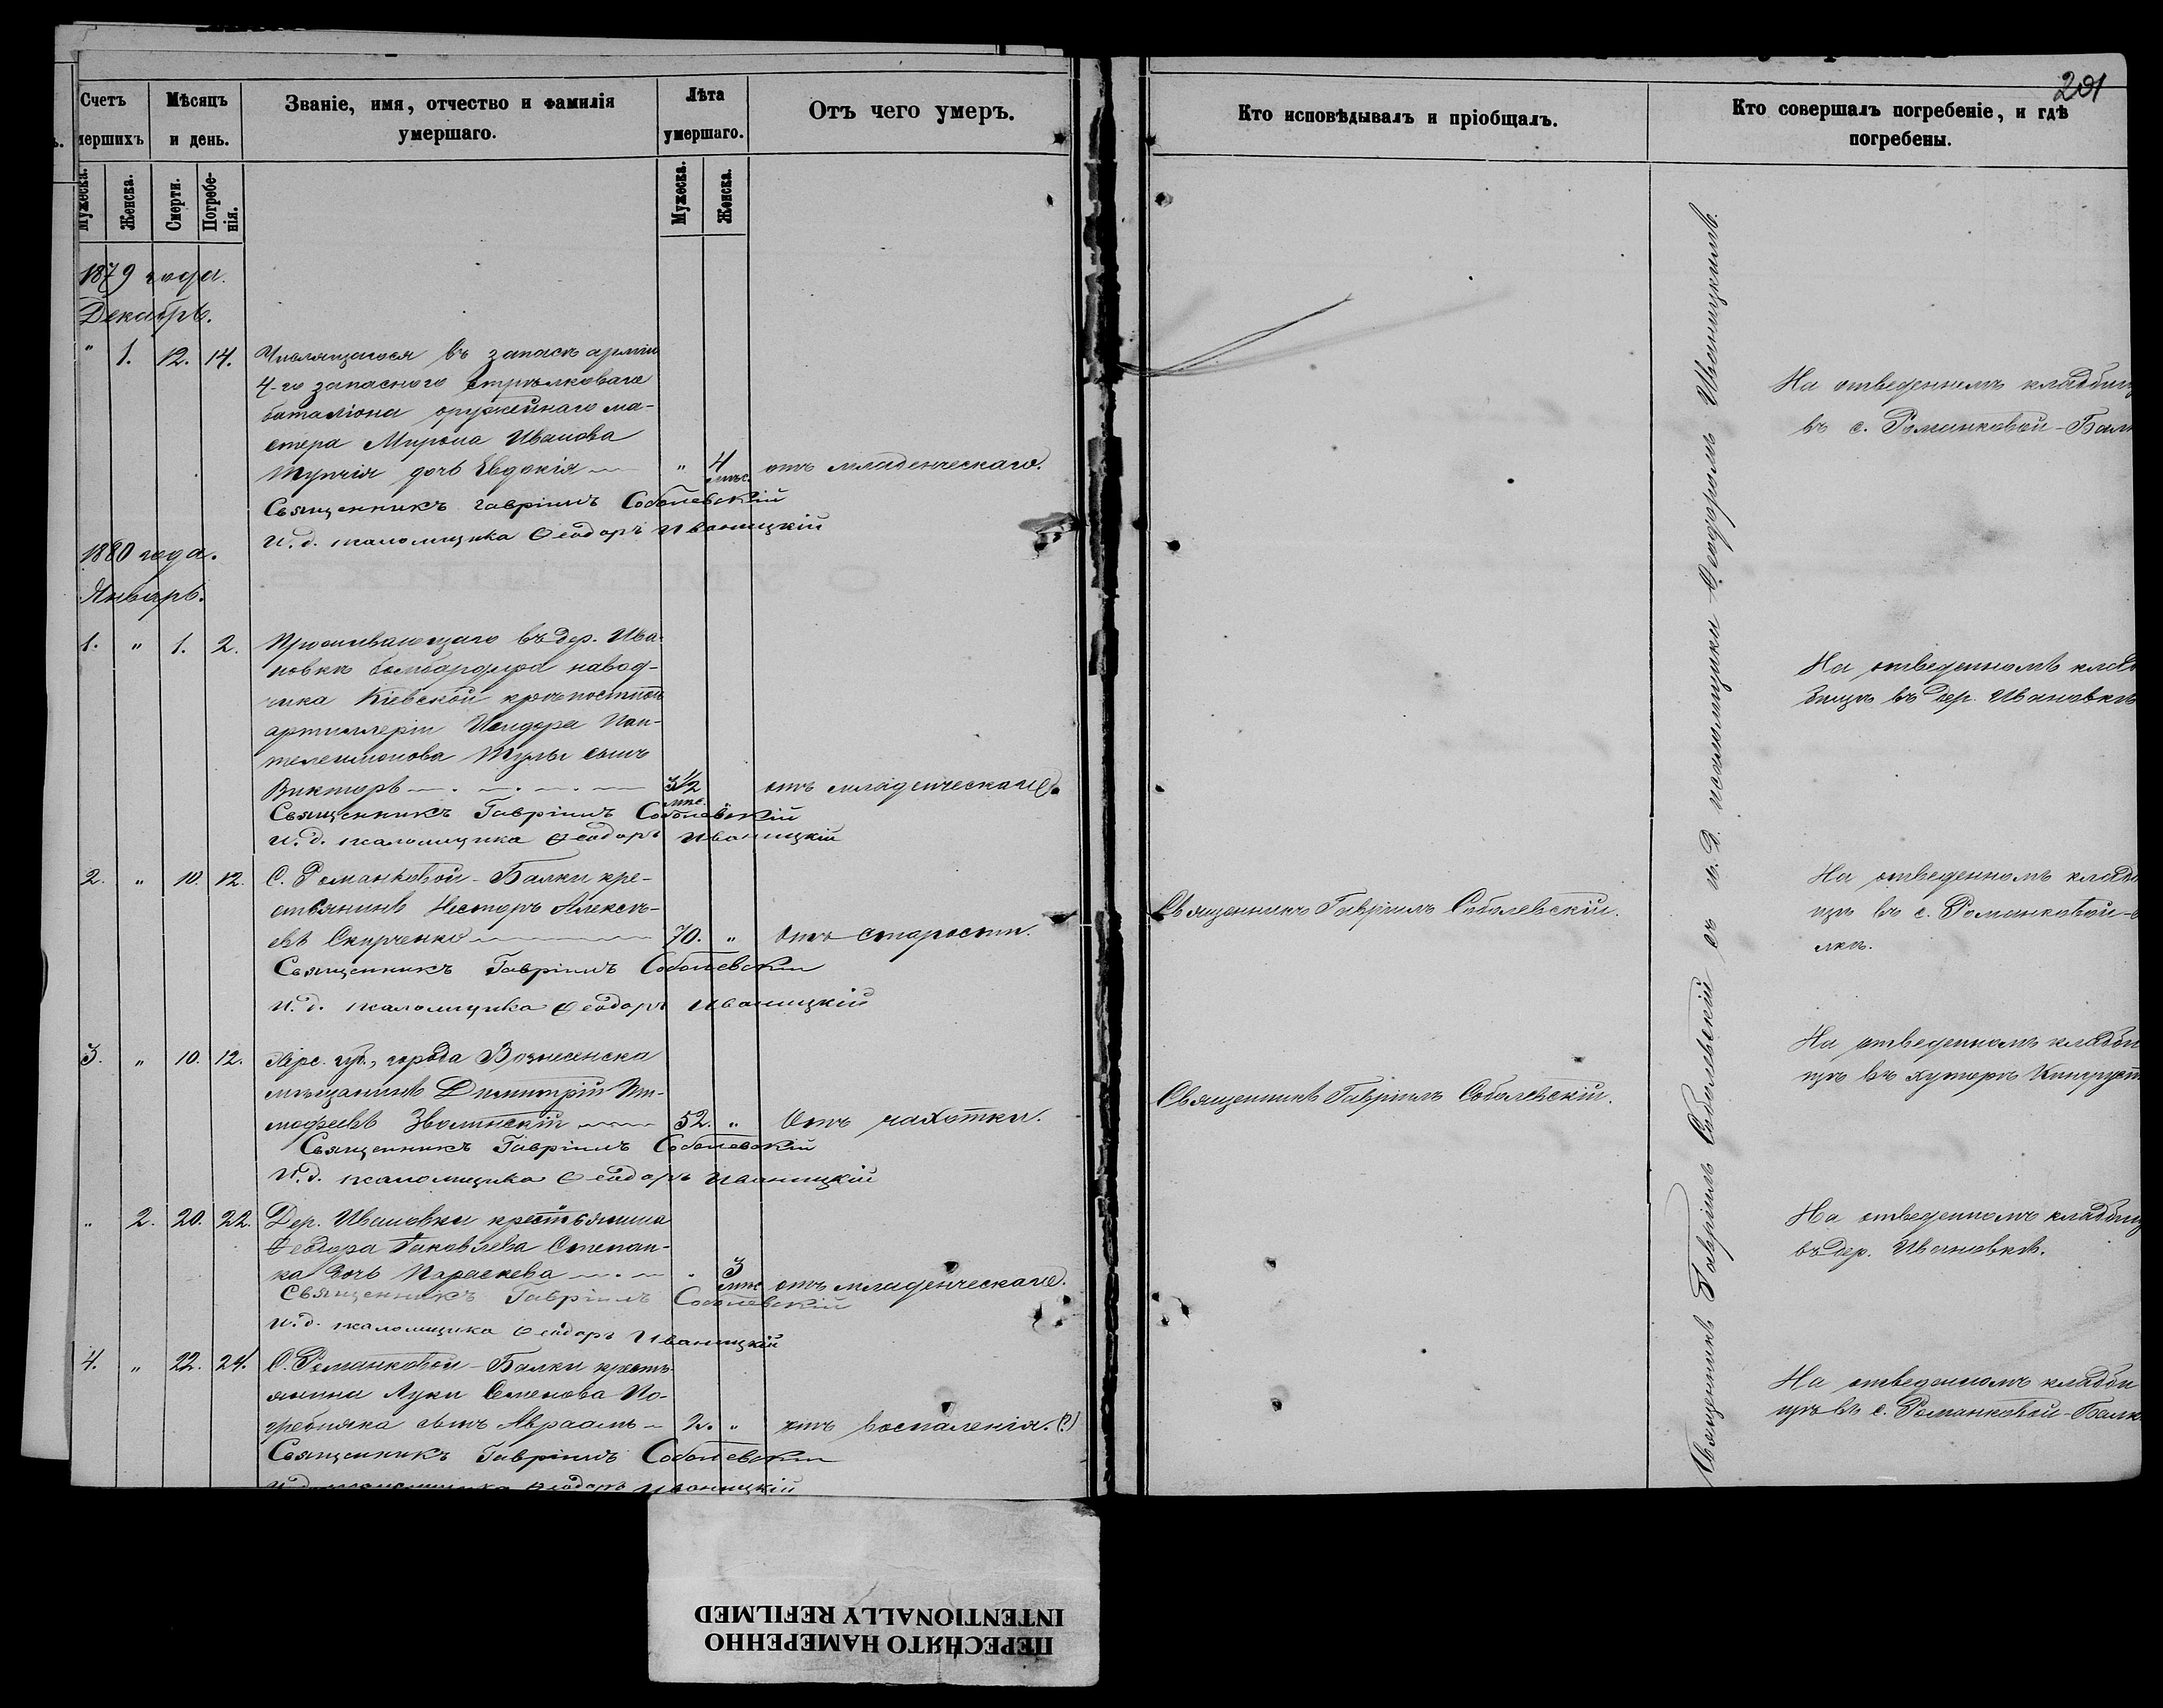 201
Счетъ
мершихъ
Мѣсяцъ
и день.
Званіе, имя, отчество и фамилія
умершаго.
Лѣта
умершаго.
Отъ чего умеръ.
Кто исповѣдывалъ и пріобщалъ.
Кто совершалъ погребеніе, и гдѣ
погребены.
Мужеска.
Женска.
Смерти.
Погребе-
нія.
Мужеска.
Женска.
1879 года.
Декабрь.
" 1. 12. 14. Числящагося въ запасѣ арміи
4-го запаснаго стрѣлковаго
баталіона оружейнаго ма-
стера Мирона Иванова
дочь Евдокія " 4 мѣс. отъ младенческаго.
Священникъ Гавріилъ Соболевскій
и. д. псаломщика Ѳеодоръ Иваницкій
На отведенномъ кладбищ
въ с. Романковой-Бал
1880 года.
Январь.
1. " 1. 2. Проживающаго въ дер. Ива-
новкѣ бомбардира навод-
чика Кіевской крѣпостной
артиллеріи Исидора Пан-
телеимонова сынъ
Викторъ 3 1/2 мѣс. отъ младенческаго.
Священникъ Гавріилъ Соболевскій
и. д. псаломщика Ѳеодоръ Иваницкій
На отведенномъ клад
бищѣ въ дер. Ивановкѣ
2. " 10. 12. С. Романковой-Балки кре-
стьянинъ Несторъ Алексѣ-
евъ Скирченко 70. " Отъ старости.
Священникъ Гавріилъ Соболевскій
и. д. псаломщика Ѳеодоръ Иваницкій
Священникъ Гавріилъ Соболевскій.
На отведенномъ кладб
щѣ въ с. Романковой-
лкѣ.
3. " 10. 12. Хѣрс. губ., города Вознесенска
мѣщанинъ Димитрій Ти-
мофеевъ Зволинскій 52. " Отъ чахотки.
Священникъ Гавріилъ Соболевскій
и. д. псаломщика Ѳеодоръ Иваницкій
Священникъ Гавріилъ Соболевскій.
На отведенномъ кладби
щѣ въ хуторѣ
" 2. 20. 22. Дер. Ивановки крестьянина
Ѳеодора Іаковлева Степан-
ка дочь Параскева " 3 мѣс. отъ младенческаго.
Священникъ Гавріилъ Соболевскій
и. д. псаломщика Ѳеодоръ Иваницкій
На отведенномъ кладбищ
въ дер. Ивановкѣ.
4. " 22. 24. С. Романковой-Балки кресть-
янина Луки Семенова По-
гребняка сынъ Авраамъ 2. " отъ воспаленія. (?)
Священникъ Гавріилъ Соболевскій
и. д. псаломщика Ѳеодоръ Иваницкій
На отведенномъ кладби
щѣ въ с. Романковой-Балк
Священникъ Гавріилъ Соболевскій съ и. д. псаломщика Ѳеодоромъ Иваницкимъ.
ПЕРЕСНЯТО НАМЕРЕННО
INTENTIONALLY REFILMED